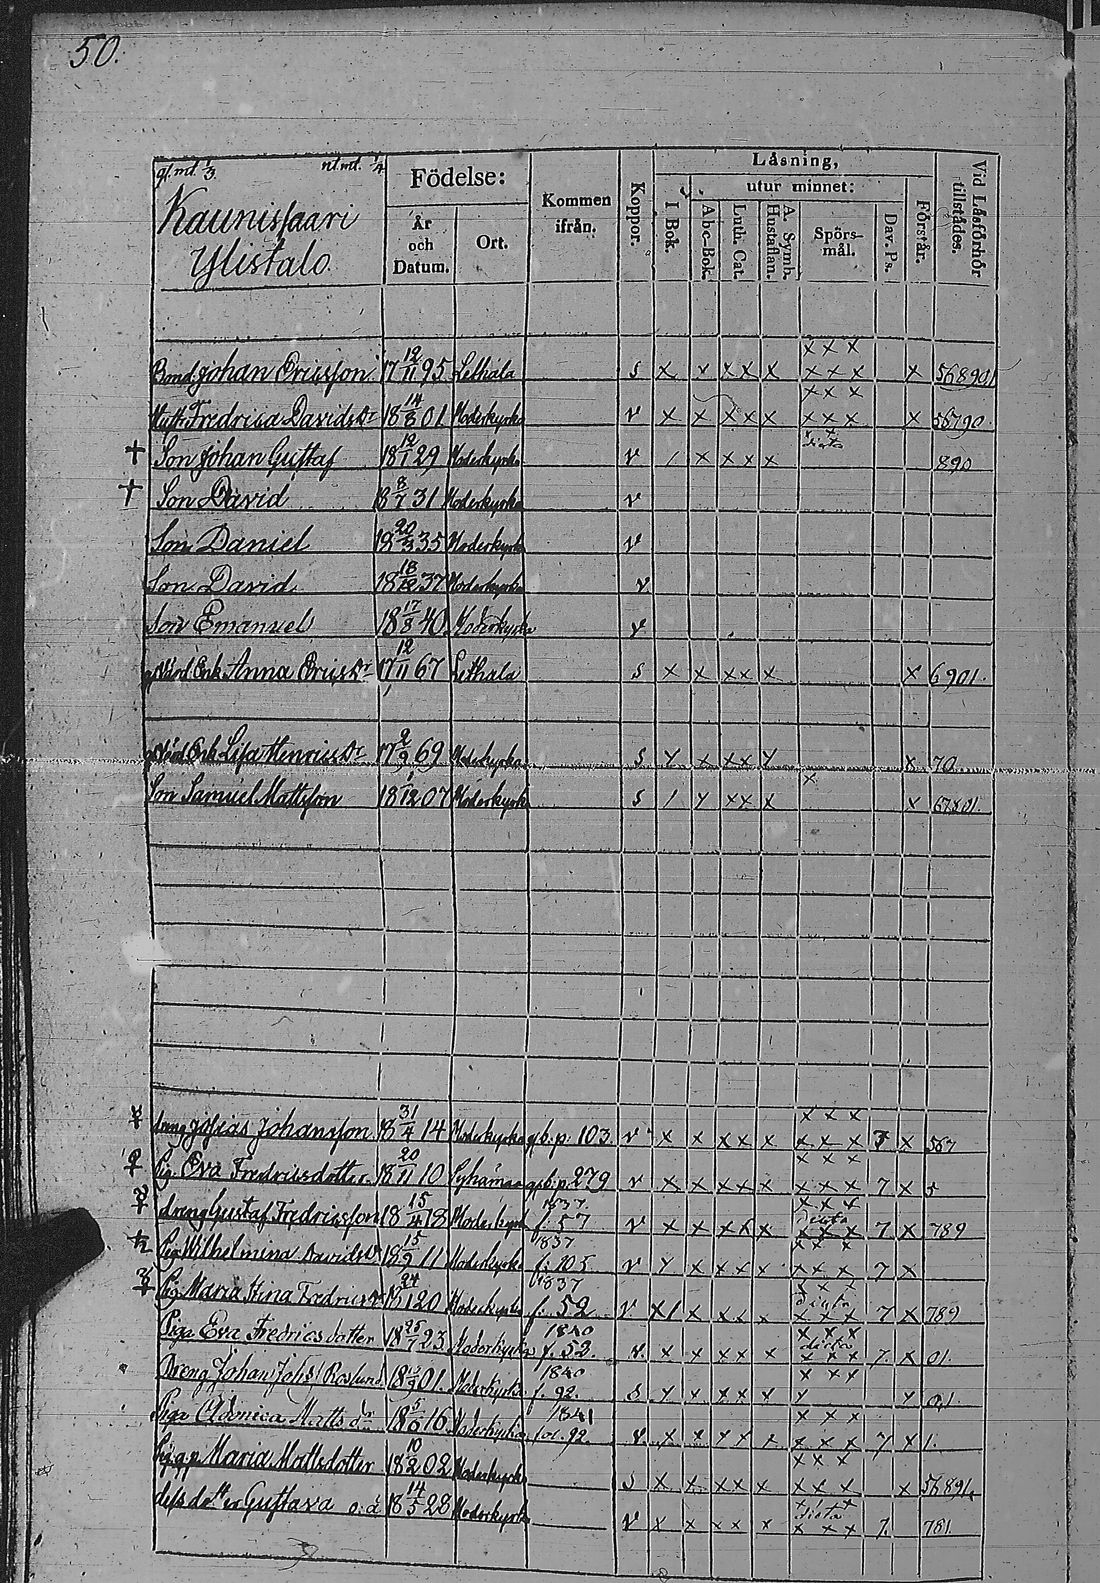 50.
gl. mt. 1/3. nt. mt. 1/4
Kaunissaari
Ylistalo.
Födelse:
År och Datum.
Ort.
Kommen ifrån.
Koppor.
Läsning,
I Bok.
utur minnet:
Abc-Bok.
Luth. Cat.
A. Symb. Hustaflan.
Spörs-mål.
Dav. Ps.
Förstår.
Vid Läsförhör tillstädes.
Bond. Johan Ericsson 17 12/11 95 Lethala s x x x x x x x x x x x x 568901
Hust. Fredrica Davidsdr 18 14/8 01 Moderkyrka v x x x x x x x x x x x x 56790
† Son Johan Gustaf 18 12/1 29 Moderkyrka v / x x x x 890
† Son David 18 8/7 31 Moderkyrka v
Son Daniel 18 20/3 35 Moderkyrka v
Son David 18 18/12 37 Moderkyrka v
Son Emanuel 18 17/8 40 Moderkyrka v
Enk. Anna Ericsdr 17 12/11 67 Lethala s x x x x x x 6901.
Enk. Lisa Henricsdr 17 2/2 69 Moderkyrka s x x x x x x 70
Son Samuel Mattsson 18 1/12 07 Moderkyrk s / x x x x x x
Josias Johansson 18 31/4 14 Moderkyrka p. 103 v x x x x x x x x x x x 7 x 567
Pig. Eva Fredricsdotter 18 20/11 10 p. 279 v x x x x x x x x x x x 7 x 5
dreng Gustaf Fredricsson 18 15/4 18 Moderkyrk 1837 f. 57 v x x x x x x x x dicta x x x 7 x 789
Pig Wilhelmina Davidsdr 18 15/9 11 Moderkyrk 1837 f. 105 v x x x x x x x x x x x 7 x
Pig. Maria Stina Fredricsdr 18 24/1 20 Moderkyrka 1837 f. 52 v x / x x x x x x x dicta x x x 7 x 789
Piga Eva Fredricsdotter 18 25/7 23 Moderkyrka 1840 f. 52. v x x x x x x x x dicta x x x 7. x 01.
Dreng Johan Johs. Roslund 18 01. Moderkyrka 1840 f. 92. s x x x x x x x x x x 01
Piga Matts dr 18 5/6 16 Moderkyrka 1841 fol. 92. v x x x x x x x x x x x 7 x 1.
Maria Mattsdotter 18 10/2 02 Moderkyrka s x x x x x x x x x x x x 56891
dess dotter Gustava o. ä. 18 14/5 28 Moderkyrka v x x x x x x x dicta x x x 7. 781